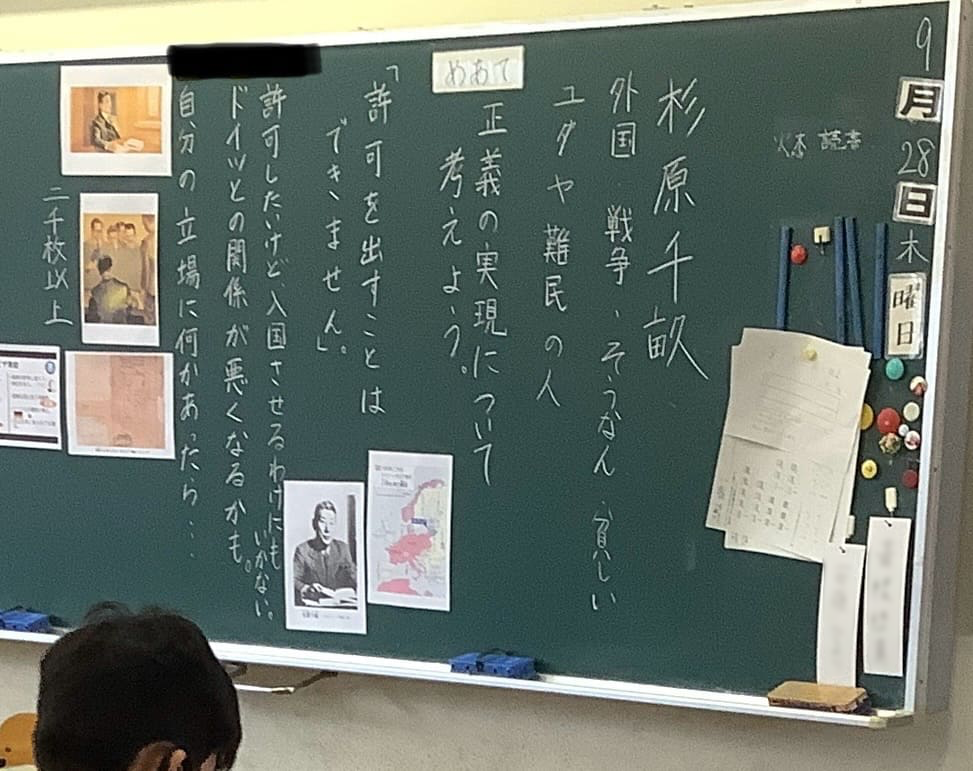 9月28日木曜日
読書
杉原千畝
外国 戦争、そうなん、貧しい
ユダヤ難民の人
めあて
正義の実現について
考えよう。
「許可を出すことは
できません」。
許可したいけど、入国させるわけにも
いかない。
ドイツとの関係が悪くなるかも。
自分の立場に何かあったら…
二千枚以上